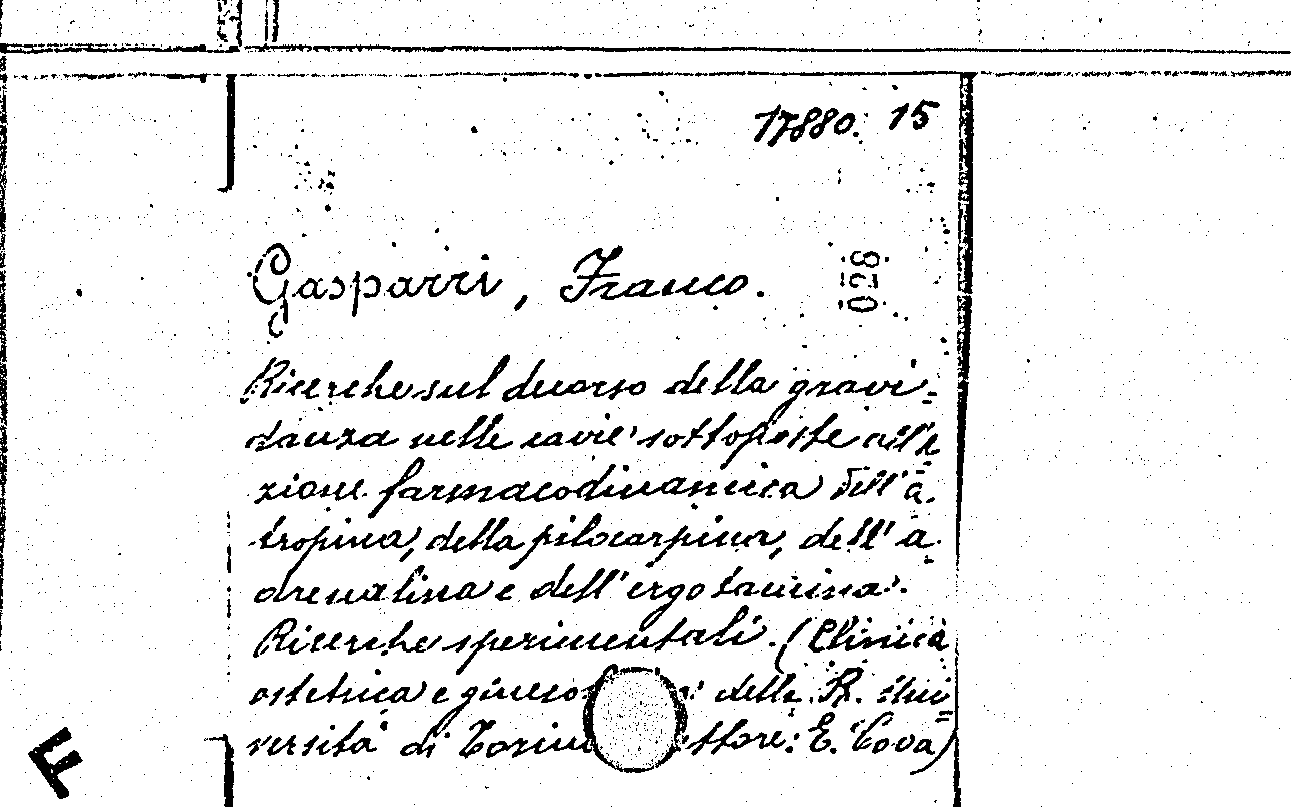 17880. 15
Gasparri, Franco.
028
Ricerche sul decorso della gravi=
danza nelle cavie sottoposte all'a
zione farmacodinamica dell'a.
tropina, della pilocarpina, dell'a
drenalina e dell'ergotamina.
Ricerche sperimentali. (Clinica
ostetrica e della R. Uni=
versità di E. Cova)
F